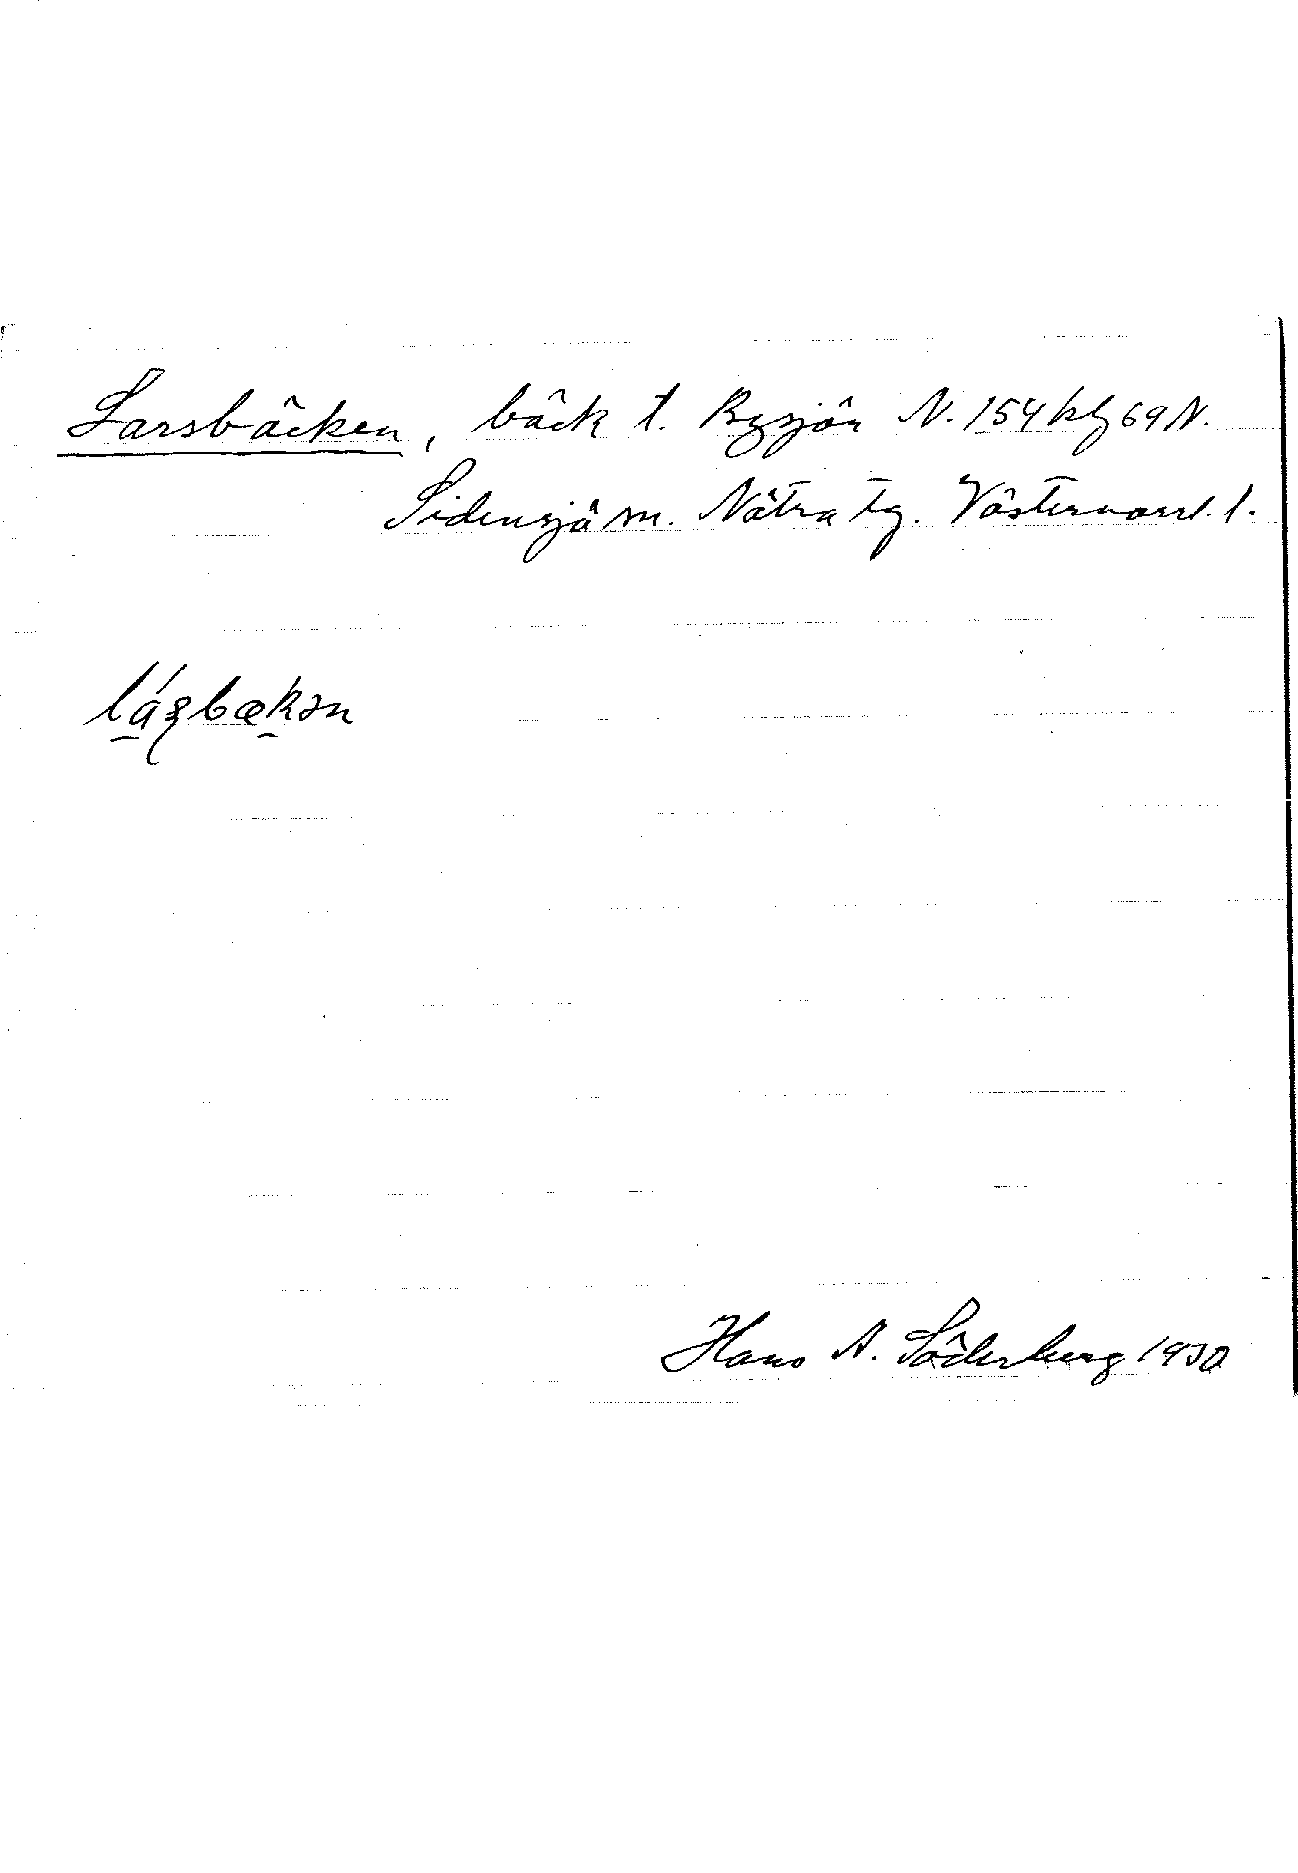 Larsbäcken, bäck t. Bysjön N. 154 kbl 69 N.
Sidensjö sn. Nätra tg. Västernorrl. l.
Hans A. Söderberg 1930